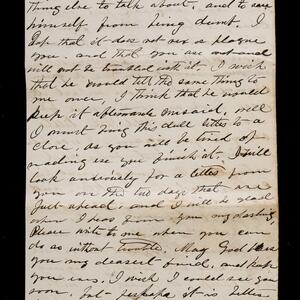 thing else to talk about, and to save
himself from being dumb. I
hope that it does not vex or plague
you. and that you are not and
will not be troubled with it. I wish
that he would tell the same thing to
me once, I think that he would
keep it afterwards unsaid, well
I must bring this dull letter to a
close, as you will be tired of
reading ere you finish it. I will
look anxiously for a letter from
you on the two days that are
just ahead, and I will be glad
when I hear from you my darling,
Please write to me when you can
do so without trouble. May God bless
you my dearest friend, and keep
you ever. I wish I could see you
soon, but perhaps it is better